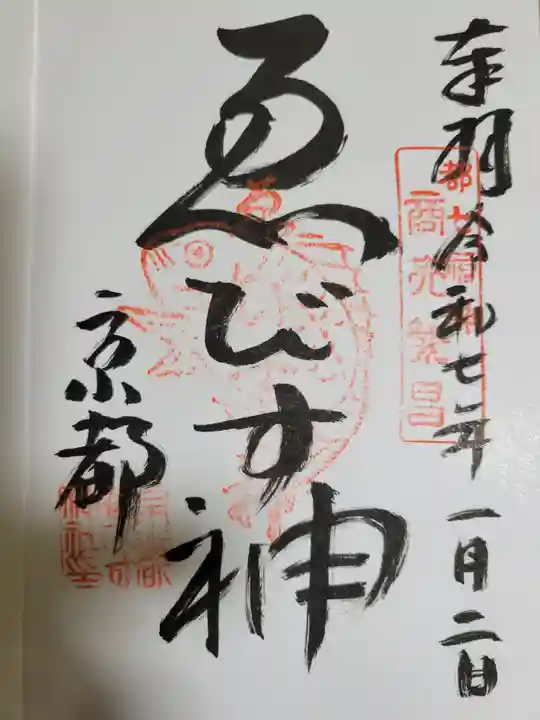 奉拝 令和七年 一月二日
都七福神
商売繁昌
ゑびす神
京都